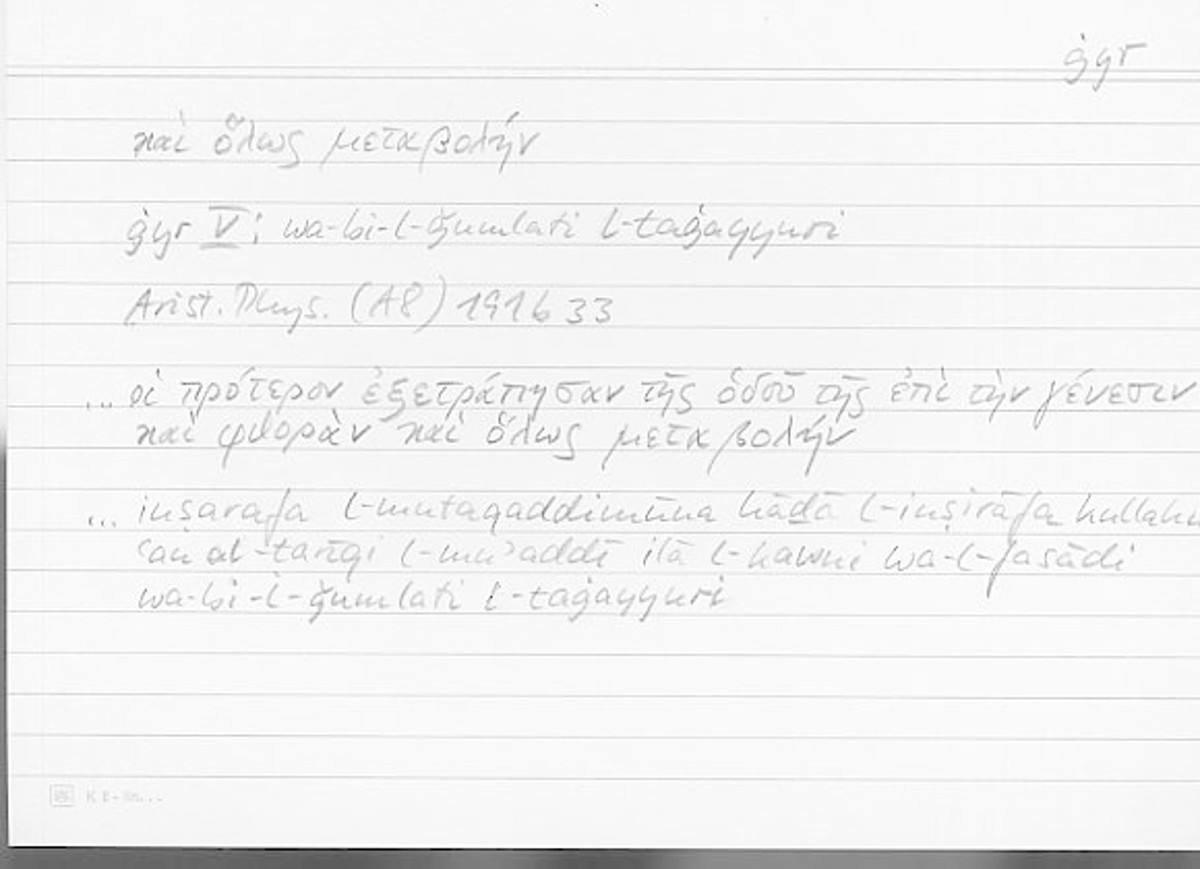 ġyr
καὶ ὅλως μεταβολήν
ġyr V; wa-bi-l-ǧumlati l-taġayyuri
Arist. Phys. (A8) 191b33
... οἱ πρότερον ἐξετράπησαν τῆς ὁδοῦ τῆς ἐπὶ τὴν γένεσιν
καὶ φθορὰν καὶ ὅλως μεταβολήν
... inṣarafa l-mutaqaddimūna hāḏā l-inṣirāfa kullahu
ʿan al-ṭarīqi l-muʾaddī ilā l-kawni wa-l-fasādi
wa-bi-l-ǧumlati l-taġayyuri